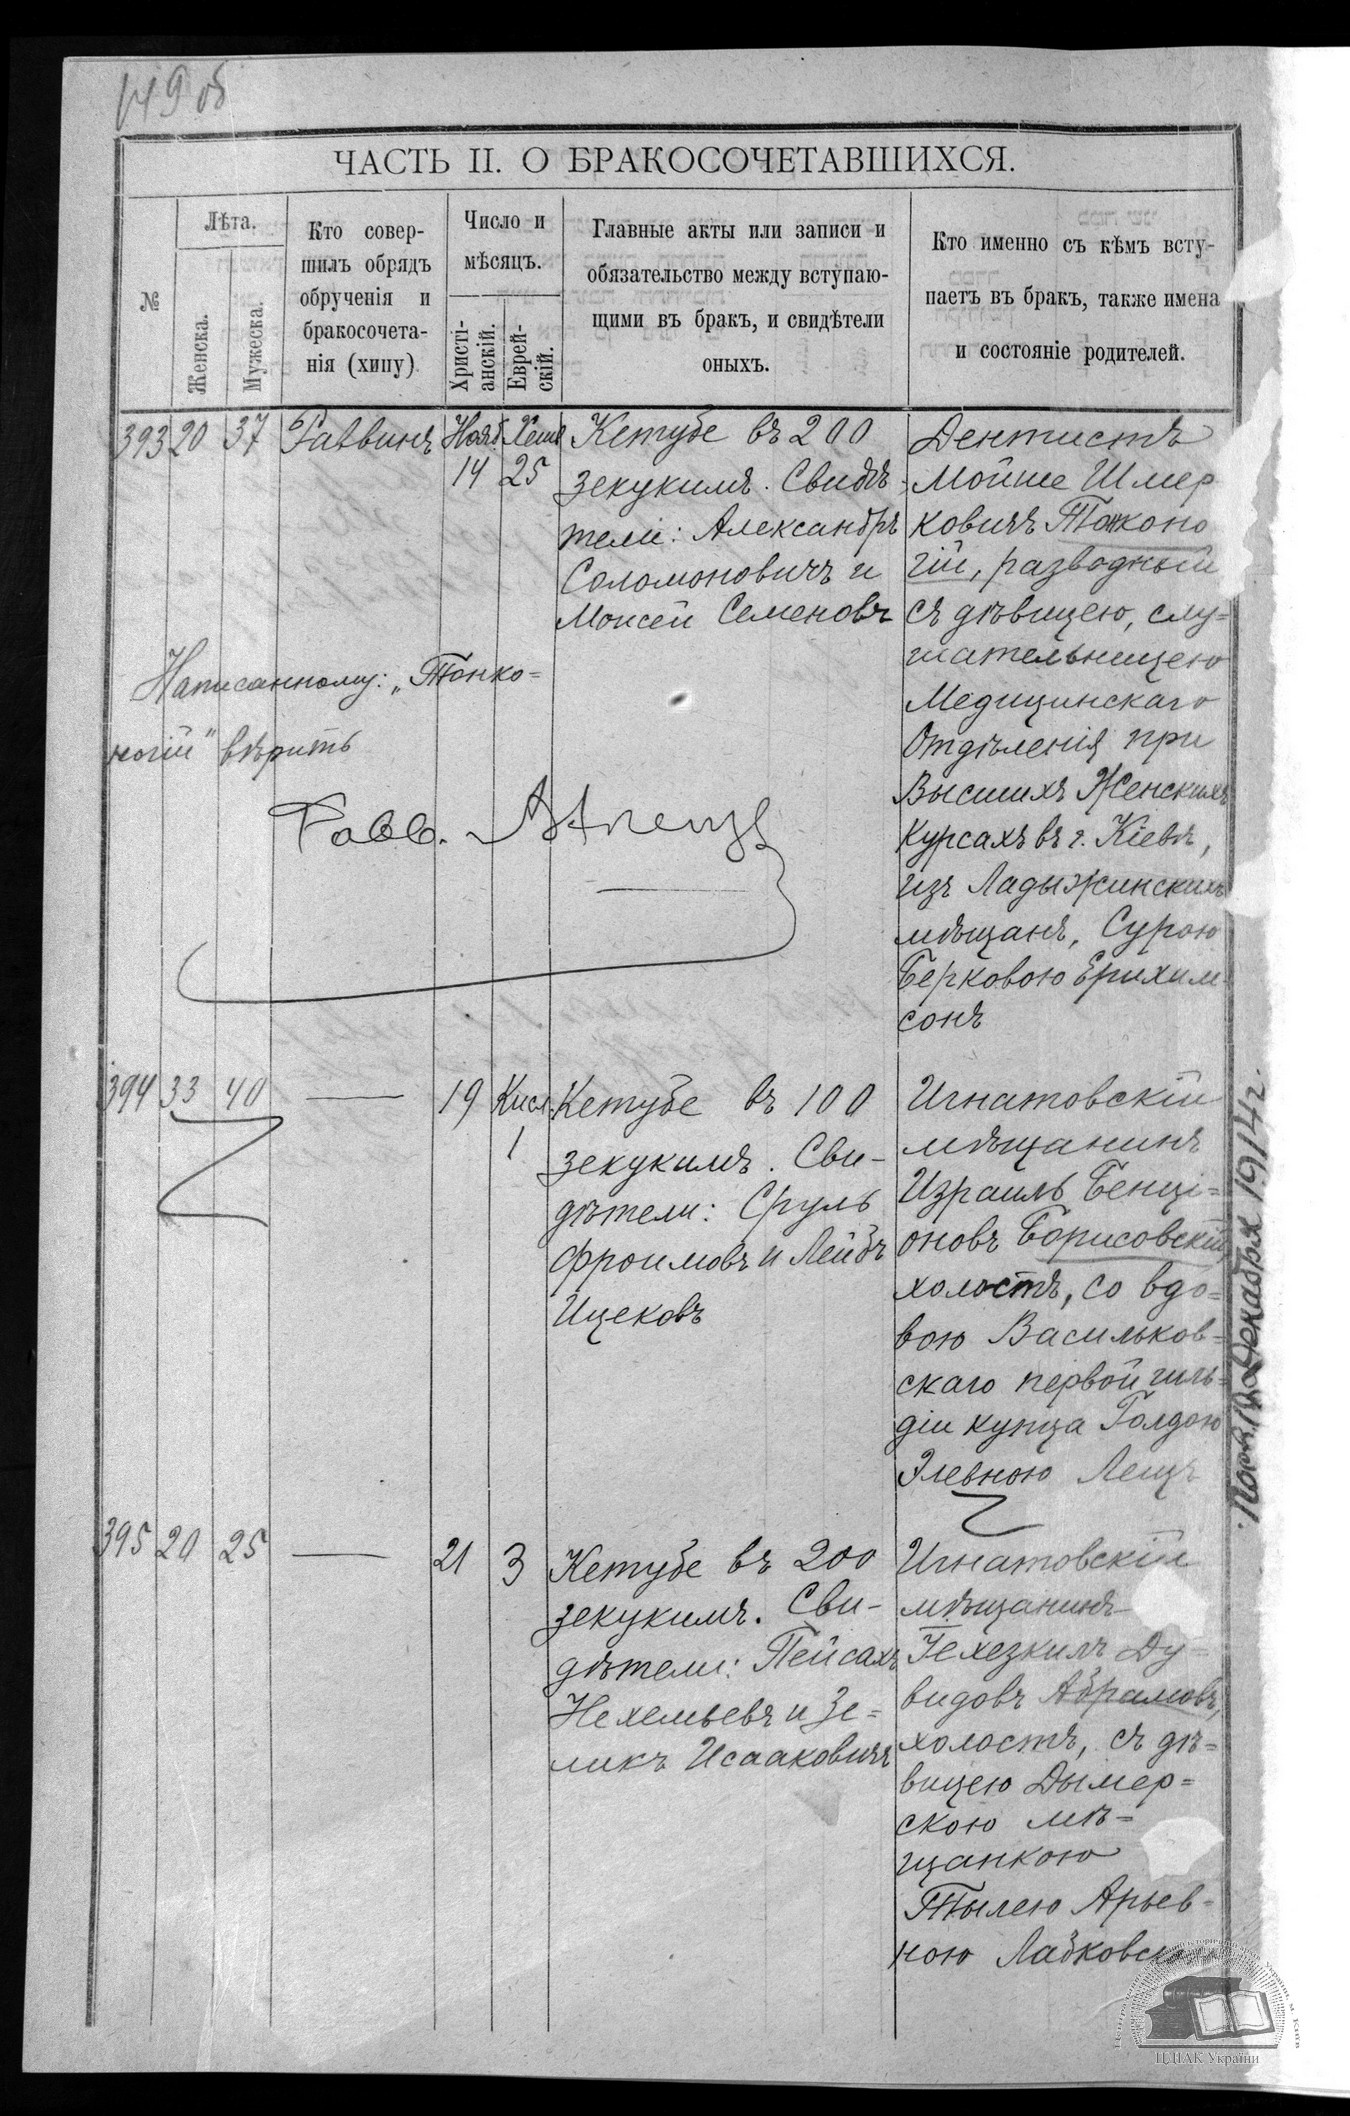 149 об
ЧАСТЬ II. О БРАКОСОЧЕТАВШИХСЯ.
№
Лѣта.
Женска.
Мужеска.
Кто совер-
шилъ обрядъ
обрученія и
бракосочета-
нія (хипу)
Число и
мѣсяцъ.
Христі-
анскій.
Еврей-
скій.
Главные акты или записи и
обязательство между вступаю-
щими въ бракъ, и свидѣтели
оныхъ.
Кто именно съ кѣмъ всту-
паетъ въ бракъ, также имена
и состояніе родителей.
393 20 37 Раввинъ Нояб. 14 Хешв 25
Кетубе въ 200
зекукимъ. Свидѣ-
тели: Александръ
Соломоновичъ и
Моисей Семеновъ
Дентистъ
Мойше Шмер
ковичъ Тонконо
гій, разводный
съ дѣвицею, слу=
шательницею
Медицинскаго
Отдѣленія при
Высшихъ Женскихъ
Курсахъ въ г. Кіевѣ,
изъ Ладыжинскихъ
мѣщанъ, Сурою
Берковою Ерихим
сонъ
Написанному: „Тонко=
ногій" вѣрить
Равв.
394 33 40 19 Кисл. 1
Кетубе въ 100
зекукимъ. Сви-
дѣтели: Сруль
Фроимовъ и Лейбъ
Ицековъ
Игнатовскій
мѣщанинъ
Израиль Бенці=
оновъ Борисовскій
холостъ, со вдо=
вою Васильков=
скаго первой гиль=
діи купца Голдою
Элевною Лещъ
395 20 25 21 3
Кетубе въ 200
зекукимъ. Сви-
дѣтели: Пейсахъ
Нехемьевъ и Зе=
ликъ Исааковичъ
Игнатовскій
мѣщанинъ
Іехезкиль Ду=
видовъ Абрамовъ,
холостъ, съ дѣ=
вицею Дымер=
скою мѣ=
щанкою
Тылею Арьев=
ною Лабковскою
Декабря 1914 г.
ЦДІАК України